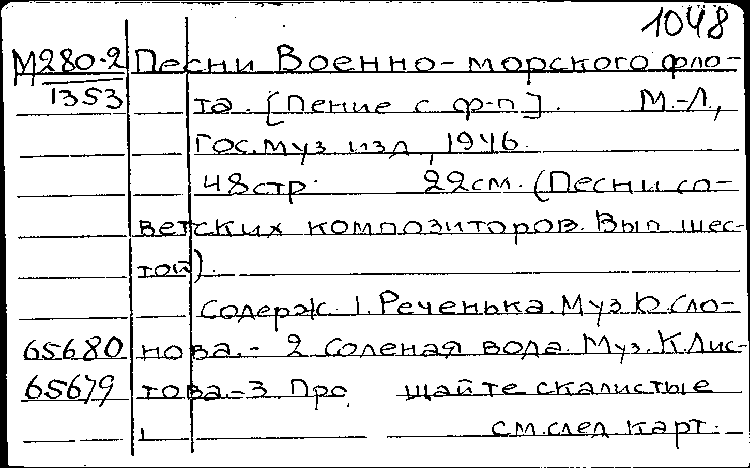 1048
М280-2 Песни Военно-морского фло-
1353 та. [Пение с ф-п]. М.-Л.,
Гос. муз изд, 1946.
48стр. 22см. (Песни со-
ветских композиторов. Вып шес-
той).
Содерж. 1. Реченька. Муз. Ю. Сло-
65680 нова. - 2 Соленая вода. Муз. К. Лис-
65679 това. - 3. Про щайте скалистые
см. след. карт.